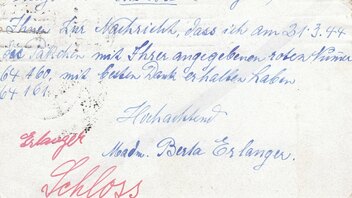 Ihnen zur Nachricht, dass ich am 21.3.44
das Päckchen mit Ihrer angegebenen roten Numer
64 160, mit besten Dank erhalten haben
64 161.
Hochachtend
Madm. Berta Erlanger.
Erlanger
Schloss